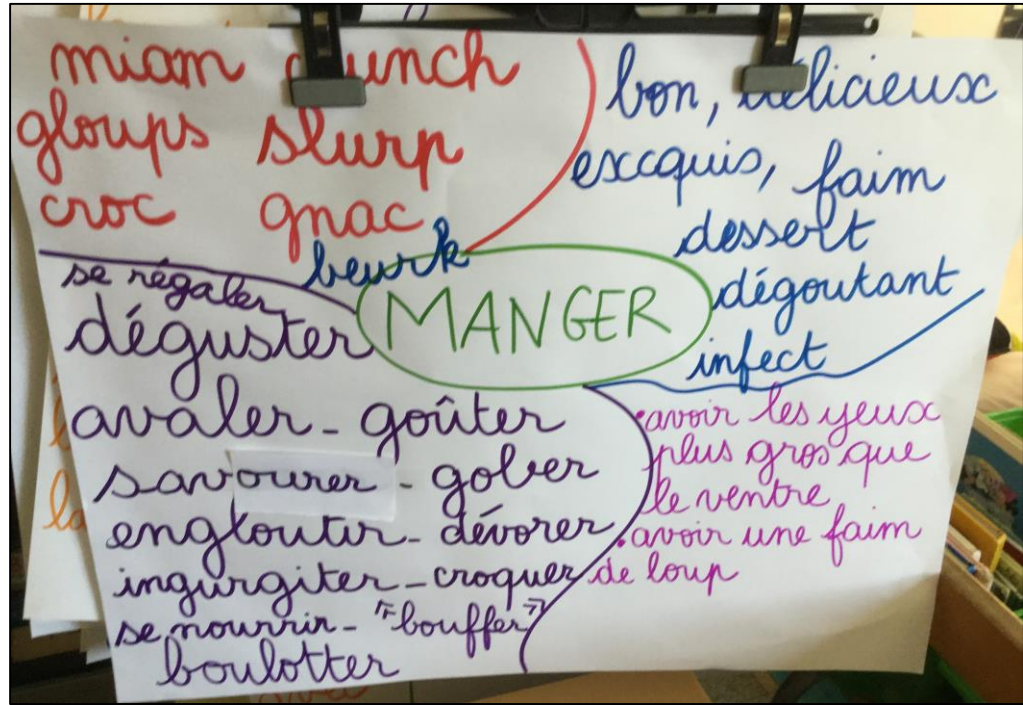 miam crunch
gloups slurp
croc gnac
beurk
bon, délicieux
excquis, faim
dessert
dégoutant
infect
MANGER
se régaler
déguster
avaler - goûter
savourer - gober
engloutir - dévorer
ingurgiter - croquer
se nourrir - "bouffer"
boulotter
• avoir les yeux
plus gros que
le ventre
• avoir une faim
de loup